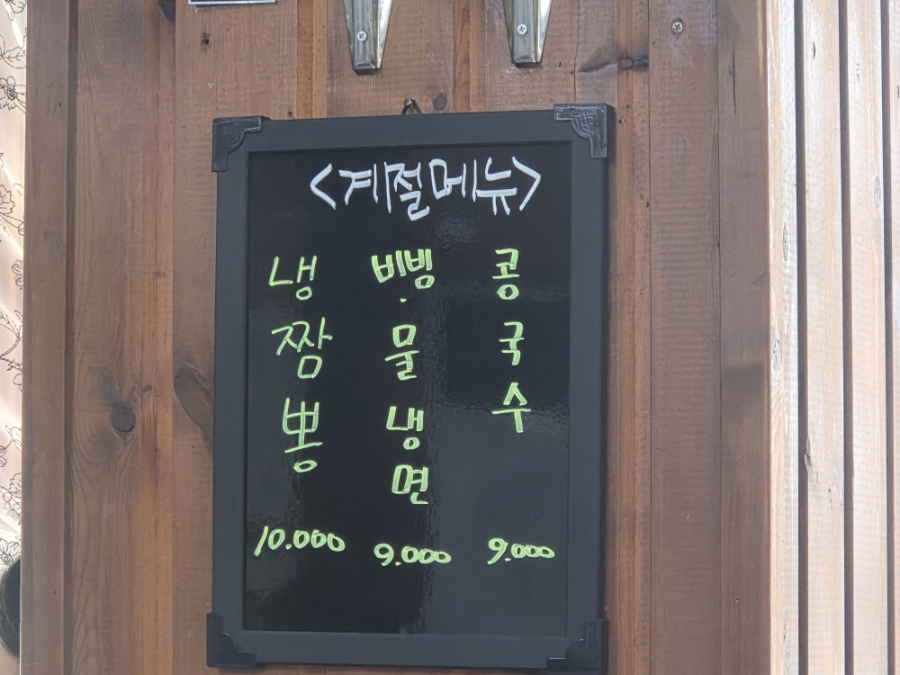 <계절메뉴>
냉짬뽕
10.000
비빔·물냉면
9.000
콩국수
9.000